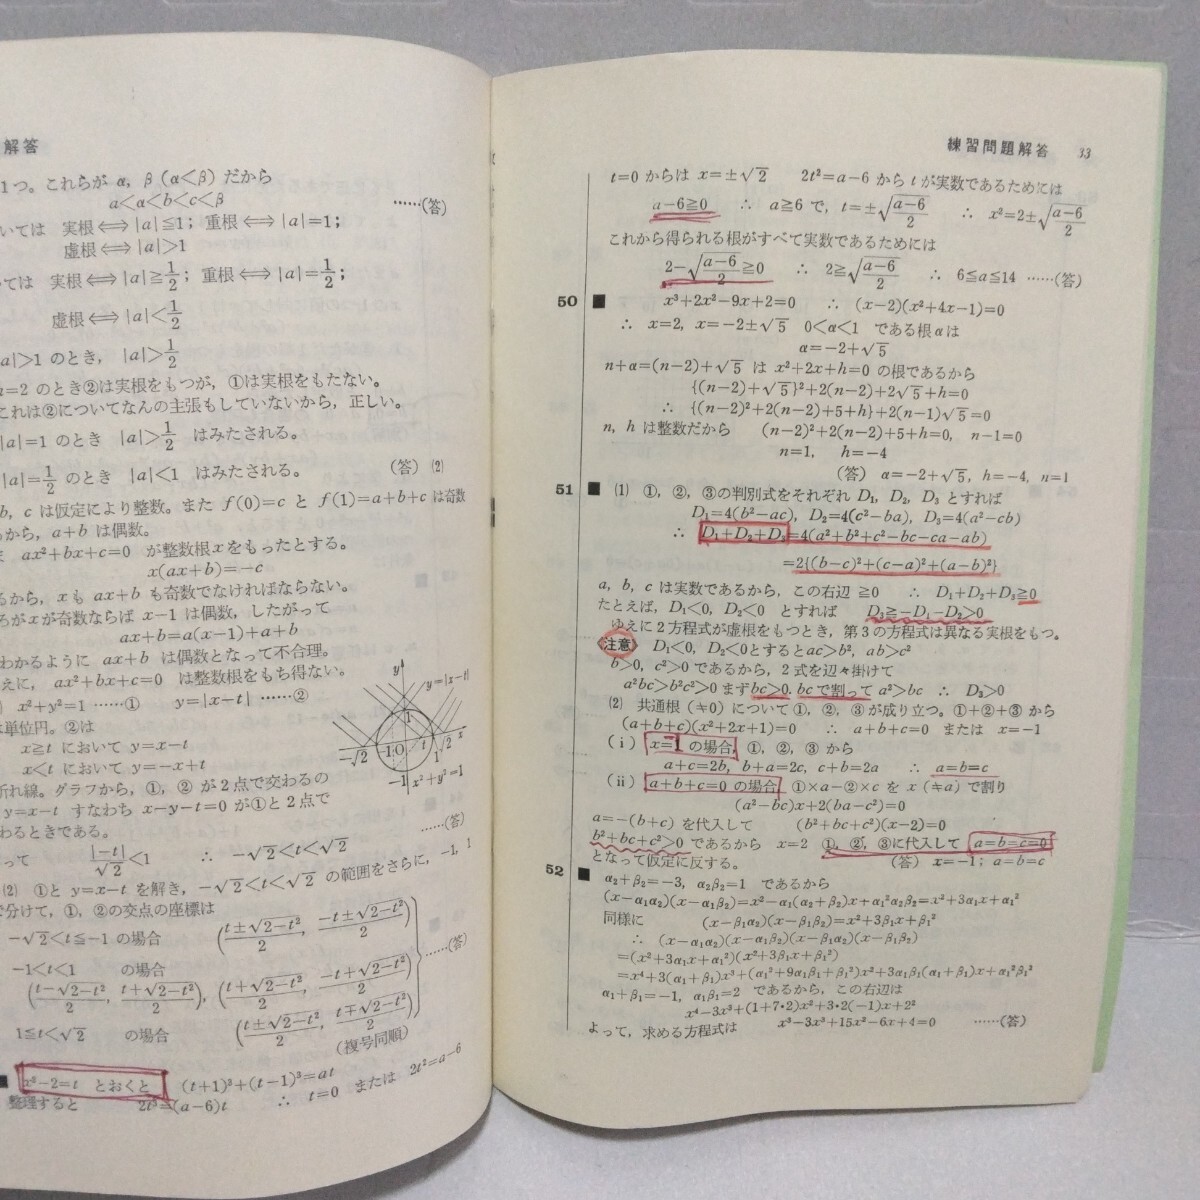 解答
1つ。これらが α, β (α<β) だから
a<α<b<c<β ……(答)
いては 実根⟺|a|≦1; 重根⟺|a|=1;
虚根⟺|a|>1
いては 実根⟺|a|≧1/2; 重根⟺|a|=1/2;
虚根⟺|a|<1/2
|a|>1 のとき, |a|>1/2
a=2 のとき②は実根をもつが, ①は実根をもたない。
これは②についてなんの主張もしていないから, 正しい。
|a|=1 のとき |a|>1/2 はみたされる。
|a|=1/2 のとき |a|<1 はみたされる。 (答) (2)
b, c は仮定により整数。また f(0)=c と f(1)=a+b+c は奇数
から, a+b は偶数。
ax²+bx+c=0 が整数根xをもったとする。
x(ax+b)=-c
るから, x も ax+b も奇数でなければならない。
ろが x が奇数ならば x-1 は偶数, したがって
ax+b=a(x-1)+a+b
わかるように ax+b は偶数となって不合理。
えに, ax²+bx+c=0 は整数根をもち得ない。
x²+y²=1 ……① y=|x-t| ……②
は単位円。②は
x≧t において y=x-t
x<t において y=-x+t
折れ線。グラフから, ①, ② が2点で交わるの
y=x-t すなわち x-y-t=0 が①と2点で
わるときである。 ……(答)
って |-t|/√2<1 ∴ -√2<t<√2
(2) ①と y=x-t を解き, -√2<t<√2 の範囲をさらに, -1, 1
で分けて, ①, ②の交点の座標は
-√2<t≦-1 の場合 ((t±√2-t²)/2, (-t±√2-t²)/2)
-1<t<1 の場合 ……(答)
((t-√2-t²)/2, (t+√2-t²)/2), ((t+√2-t²)/2, (-t+√2-t²)/2)
1≦t<√2 の場合 ((t±√2-t²)/2, (t∓√2-t²)/2)
(複号同順)
x²-2=t とおくと (t+1)³+(t-1)³=at
整理すると 2t³=(a-6)t ∴ t=0 または 2t²=a-6
y
y=|x-t|
1
-√2 -1 O t 1 √2 x
-1 x²+y²=1
練習問題解答 33
t=0 からは x=±√2 2t²=a-6 から t が実数であるためには
a-6≧0 ∴ a≧6 で, t=±√(a-6)/2 ∴ x²=2±√(a-6)/2
これから得られる根がすべて実数であるためには
2-√(a-6)/2≧0 ∴ 2≧√(a-6)/2 ∴ 6≦a≦14 ……(答)
50 ■ x³+2x²-9x+2=0 ∴ (x-2)(x²+4x-1)=0
∴ x=2, x=-2±√5 0<α<1 である根αは
α=-2+√5
n+α=(n-2)+√5 は x²+2x+h=0 の根であるから
{(n-2)+√5}²+2(n-2)+2√5+h=0
∴ {(n-2)²+2(n-2)+5+h}+2(n-1)√5=0
n, h は整数だから (n-2)²+2(n-2)+5+h=0, n-1=0
n=1, h=-4
(答) α=-2+√5, h=-4, n=1
51 ■ (1) ①, ②, ③の判別式をそれぞれ D₁, D₂, D₃ とすれば
D₁=4(b²-ac), D₂=4(c²-ba), D₃=4(a²-cb)
∴ D₁+D₂+D₃=4(a²+b²+c²-bc-ca-ab)
=2{(b-c)²+(c-a)²+(a-b)²}
a, b, c は実数であるから, この右辺 ≧0 ∴ D₁+D₂+D₃≧0
たとえば, D₁<0, D₂<0 とすれば D₃≧-D₁-D₂>0
ゆえに2方程式が虚根をもつとき, 第3の方程式は異なる実根をもつ。
《注意》 D₁<0, D₂<0とするとac>b², ab>c²
b²>0, c²>0 であるから, 2式を辺々掛けて
a²bc>b²c²>0 まず bc>0. bc で割って a²>bc ∴ D₃>0
(2) 共通根 (キ0) について①, ②, ③が成り立つ。①+②+③ から
(a+b+c)(x²+2x+1)=0 ∴ a+b+c=0 または x=-1
(i) x=-1 の場合, ①, ②, ③から
a+c=2b, b+a=2c, c+b=2a ∴ a=b=c
(ii) a+b+c=0 の場合 ①×a-②×c を x (キa) で割り
(a²-bc)x+2(ba-c²)=0
a=-(b+c) を代入して (b²+bc+c²)(x-2)=0
b²+bc+c²>0 であるから x=2 ①, ②, ③に代入して a=b=c=0
となって仮定に反する。 (答) x=-1; a=b=c
52 ■ α₂+β₂=-3, α₂β₂=1 であるから
(x-α₁α₂)(x-α₁β₂)=x²-α₁(α₂+β₂)x+α₁²α₂β₂=x²+3α₁x+α₁²
同様に (x-β₁α₂)(x-β₁β₂)=x²+3β₁x+β₁²
∴ (x-α₁α₂)(x-α₁β₂)(x-β₁α₂)(x-β₁β₂)
=(x²+3α₁x+α₁²)(x²+3β₁x+β₁²)
=x⁴+3(α₁+β₁)x³+(α₁²+9α₁β₁+β₁²)x²+3α₁β₁(α₁+β₁)x+α₁²β₁²
α₁+β₁=-1, α₁β₁=2 であるから, この右辺は
x⁴-3x³+(1+7·2)x²+3·2(-1)x+2²
よって, 求める方程式は x⁴-3x³+15x²-6x+4=0 ……(答)